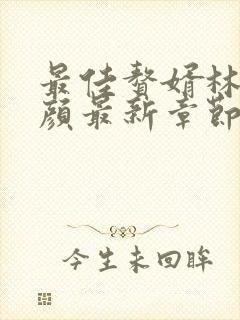 最佳赘婿林
颜最新章节
今生未回眸